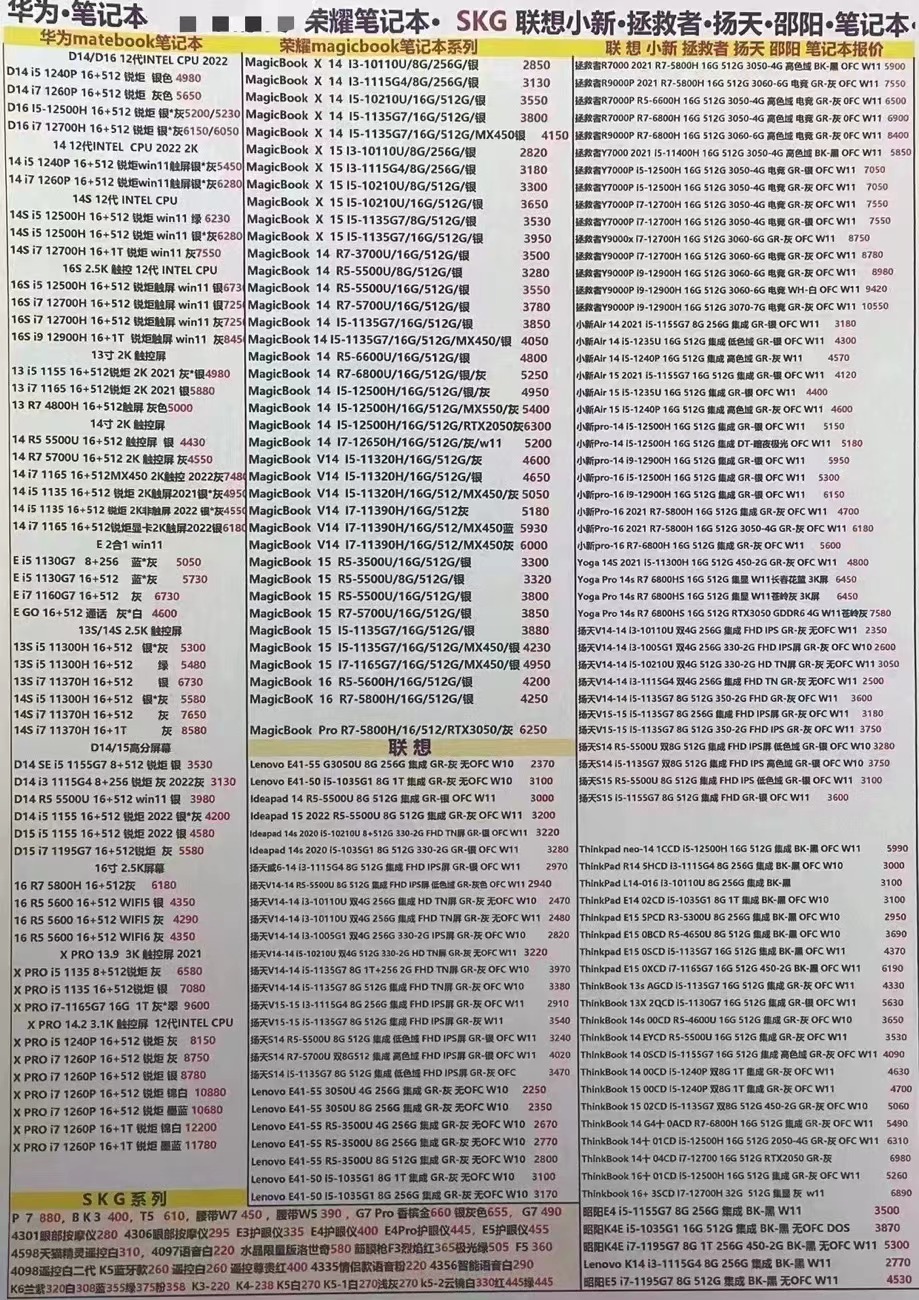 华为·笔记本 荣耀笔记本· SKG 联想小新·拯救者·扬天·邵阳·笔记本·
华为matebook笔记本
D14/D16 12代INTEL CPU 2022
D14 i5 1240P 16+512 锐炬 银色 4980
D14 i7 1260P 16+512 锐炬 灰色 5650
D16 I5-12500H 16+512 锐炬 银*灰5200/5230
D16 i7 12700H 16+512 锐炬 银*灰6150/6050
14 12代INTEL CPU 2022 2K
14 i5 1240P 16+512 锐炬win11触屏银*灰5450
14 i7 1260P 16+512 锐炬win11触屏银*灰6280
14S 12代 INTEL CPU
14S i5 12500H 16+512 锐炬 win11 绿 6230
14S i5 12500H 16+512 锐炬 win11 银*灰6280
14S i7 12700H 16+1T 锐炬 win11 灰7550
16S 2.5K 触控 12代 INTEL CPU
16S i5 12500H 16+512 锐炬触屏 win11 银673
16S i7 12700H 16+512 锐炬触屏 win11 银725
16S i7 12700H 16+512 锐炬触屏 win11 灰725
16S i9 12900H 16+1T 锐炬触屏 win11 灰845
13寸 2K 触控屏
13 i5 1155 16+512锐炬 2K 2021 灰*银4980
13 i7 1165 16+512锐炬 2K 2021 银5880
13 R7 4800H 16+512触屏 灰色5000
14寸 2K 触控屏
14 R5 5500U 16+512 触控屏 银 4430
14 R7 5700U 16+512 2K 触控屏 灰4550
14 i7 1165 16+512MX450 2K触控 2022灰748
14 i5 1135 16+512 锐炬 2K触屏2021银*灰495
14 i5 1135 16+512 锐炬 2K非触屏 2022 银*灰455
14 i7 1165 16+512锐炬显卡2K触屏2022银618
E 2合1 win11
E i5 1130G7 8+256 蓝*灰 5050
E i5 1130G7 16+512 蓝*灰 5730
E i7 1160G7 16+512 灰 6730
E GO 16+512 通话 灰*白 4600
13S/14S 2.5K 触控屏
13S i5 11300H 16+512 银*灰 5300
13S i5 11300H 16+512 绿 5480
13S i7 11370H 16+512 银 6730
14S i5 11300H 16+512 银*灰 5580
14S i7 11370H 16+512 灰 7650
14S i7 11370H 16+1T 灰 8580
D14/15高分屏幕
D14 SE i5 1155G7 8+512 锐炬 银 3530
D14 i3 1115G4 8+256 锐炬 灰 2022灰 3130
D14 R5 5500U 16+512 win11 银 3980
D14 i5 1155 16+512 锐炬 2022 银*灰 4200
D15 i5 1155 16+512 锐炬 2022 银 4580
D15 i7 1195G7 16+512锐炬 灰 5580
16寸 2.5K屏幕
16 R7 5800H 16+512灰 6180
16 R5 5600 16+512 WIFI5 银 4350
16 R5 5600 16+512 WIFI5 灰 4290
16 R5 5600 16+512 WIFI6 灰 4350
X PRO 13.9 3K 触控屏 2021
X PRO i5 1135 8+512锐炬 灰 6580
X PRO i5 1135 16+512锐炬 银 7080
X PRO i7-1165G7 16G 1T 灰*翠 9600
X PRO 14.2 3.1K 触控屏 12代INTEL CPU
X PRO i5 1240P 16+512 锐炬 灰 8150
X PRO i7 1260P 16+512 锐炬 灰 8750
X PRO i7 1260P 16+512 锐炬 银 8780
X PRO i7 1260P 16+512 锐炬 锦白 10880
X PRO i7 1260P 16+512 锐炬 墨蓝 10680
X PRO i7 1260P 16+1T 锐炬 锦白 12200
X PRO i7 1260P 16+1T 锐炬 墨蓝 11780
荣耀magicbook笔记本系列
MagicBook X 14 I3-10110U/8G/256G/银 2850
MagicBook X 14 I3-1115G4/8G/256G/银 3130
MagicBook X 14 I5-10210U/16G/512G/银 3550
MagicBook X 14 I5-1135G7/16G/512G/银 3800
MagicBook X 14 I5-1135G7/16G/512G/MX450银 4150
MagicBook X 15 I3-10110U/8G/256G/银 2820
MagicBook X 15 I3-1115G4/8G/256G/银 3180
MagicBook X 15 I5-10210U/8G/512G/银 3300
MagicBook X 15 I5-10210U/16G/512G/银 3650
MagicBook X 15 I5-1135G7/8G/512G/银 3530
MagicBook X 15 I5-1135G7/16G/512G/银 3950
MagicBook 14 R7-3700U/16G/512G/银 3500
MagicBook 14 R5-5500U/8G/512G/银 3280
MagicBook 14 R5-5500U/16G/512G/银 3550
MagicBook 14 R7-5700U/16G/512G/银 3780
MagicBook 14 I5-1135G7/16G/512G/银 3850
MagicBook 14 I5-1135G7/16G/512G/MX450/银 4050
MagicBook 14 R5-6600U/16G/512G/银 4800
MagicBook 14 R7-6800U/16G/512G/银/灰 5250
MagicBook 14 I5-12500H/16G/512G/银/灰 4950
MagicBook 14 I5-12500H/16G/512G/MX550/灰 5400
MagicBook 14 I5-12500H/16G/512G/RTX2050灰6300
MagicBook 14 I7-12650H/16G/512G/灰/w11 5200
MagicBook V14 I5-11320H/16G/512G/灰 4600
MagicBook V14 I5-11320H/16G/512G/银 4650
MagicBook V14 I5-11320H/16G/512/MX450/灰 5050
MagicBook V14 I7-11390H/16G/512灰 5180
MagicBook V14 I7-11390H/16G/512/MX450蓝 5930
MagicBook V14 I7-11390H/16G/512/MX450灰 6000
MagicBook 15 R5-3500U/16G/512G/银 3300
MagicBook 15 R5-5500U/8G/512G/银 3320
MagicBook 15 R5-5500U/16G/512G/银 3800
MagicBook 15 R7-5700U/16G/512G/银 3850
MagicBook 15 I5-1135G7/16G/512G/银 3880
MagicBook 15 I5-1135G7/16G/512G/MX450/银 4230
MagicBook 15 I7-1165G7/16G/512G/MX450/银 4950
MagicBook 16 R5-5600H/16G/512G/银 4200
MagicBooK 16 R7-5800H/16G/512G/银 4250
MagicBook Pro R7-5800H/16/512/RTX3050/灰 6250
联想
Lenovo E41-55 G3050U 8G 256G 集成 GR-灰 无OFC W10 2370
Lenovo E41-50 i5-1035G1 8G 1T 集成 GR-灰 无OFC W10 3100
Ideapad 14 R5-5500U 8G 512G 集成 GR-银 OFC W11 3000
Ideapad 15 2022 R5-5500U 8G 512G 集成 GR-银 OFC W11 3200
Ideapad 14s 2020 I5-10210U 8+512G 330-2G FHD TN屏 GR-银 OFC W11 3220
Ideapad 14s 2020 i5-1035G1 8G 512G 330-2G GR-银 OFC W11 3280
扬天威6-14 i3-1115G4 8G 512G 集成 FHD IPS屏 GR-银 OFC W11 2970
扬天V14-14 R5-5500U 8G 512G 集成 FHD IPS屏 低色域 GR-灰色 OFC W11 2940
扬天V14-14 i3-10110U 双4G 256G 集成 HD TN屏 GR-灰 无OFC W10 2470
扬天V14-14 i3-10110U 双4G 256G 集成 FHD TN屏 GR-灰 无OFC W11 2480
扬天V14-14 i3-1005G1 双4G 256G 330-2G IPS屏 GR-灰 OFC W10 2820
扬天V14-14 I5-10210U 双4G 512G 330-2G HD TN屏 GR-灰 无OFC W11 3220
扬天V14-14 i5-1135G7 8G 1T+256 2G FHD TN屏 GR-灰 OFC W10 3970
扬天V14-14 i5-1135G7 8G 512G 集成 FHD TN屏 GR-灰 OFC W10 3380
扬天V15-15 i3-1115G4 8G 256G 集成 FHD IPS屏 GR-灰 OFC W11 2910
扬天V15-15 i5-1135G7 8G 512G 集成 FHD IPS屏 GR-灰 W11 3540
扬天S14 R5-5500U 8G 512G 集成 低色域 FHD IPS屏 GR-灰 OFC W11 3240
扬天S14 R7-5700U 双8G512 集成 高色域 FHD IPS屏 GR-灰 OFC W11 4020
扬天S14 i5-1135G7 8G 512G 集成 低色域 FHD IPS屏 GR-灰 OFC 3470
Lenovo E41-55 3050U 4G 256G 集成 GR-灰 无OFC W10 2250
Lenovo E41-55 3050U 8G 256G 集成 GR-灰 无OFC W10 2350
Lenovo E41-55 R5-3500U 4G 256G 集成 GR-灰 无OFC W10 2670
Lenovo E41-55 R5-3500U 8G 256G 集成 GR-灰 无OFC W10 2770
Lenovo E41-55 R5-3500U 8G 512G 集成 GR-灰 无OFC W10 2800
Lenovo E41-50 i5-1035G1 8G 1T 集成 GR-灰 无OFC W11 3100
Lenovo E41-50 I5-1035G1 8G 256G 集成 GR-灰 无OFC W10 3170
联 想 小新 拯救者 扬天 邵阳 笔记本报价
拯救者R7000 2021 R7-5800H 16G 512G 3050-4G 高色域 BK-黑 OFC W11 5900
拯救者R9000P 2021 R7-5800H 16G 512G 3060-6G 电竞 GR-灰 OFC W11 7550
拯救者R7000P R5-6600H 16G 512G 3050-4G 高色域 电竞 GR-灰 OFC W11 6500
拯救者R7000P R7-6800H 16G 512G 3050-4G 高色域 电竞 GR-灰 OFC W11 6900
拯救者R9000P R7-6800H 16G 512G 3060-6G 高色域 电竞 GR-灰 OFC W11 8400
拯救者Y7000 2021 I5-11400H 16G 512G 3050-4G 高色域 BK-黑 OFC W11 5850
拯救者Y7000P i5-12500H 16G 512G 3050-4G 电竞 GR-银 OFC W11 7050
拯救者Y7000P i5-12500H 16G 512G 3050-4G 电竞 GR-灰 OFC W11 7050
拯救者Y7000P i7-12700H 16G 512G 3050-4G 电竞 GR-灰 OFC W11 7550
拯救者Y7000P i7-12700H 16G 512G 3050-4G 电竞 GR-银 OFC W11 7550
拯救者Y9000x i7-12700H 16G 512G 3060-6G GR-灰 OFC W11 8750
拯救者Y9000P i7-12700H 16G 512G 3060-6G 电竞 GR-灰 OFC W11 8780
拯救者Y9000P i9-12900H 16G 512G 3060-6G 电竞 GR-灰 OFC W11 8980
拯救者Y9000P i9-12900H 16G 512G 3060-6G 电竞 WH-白 OFC W11 9420
拯救者Y9000P I9-12900H 16G 512G 3070-7G 电竞 GR-灰 OFC W11 10550
小新Air 14 2021 i5-1155G7 8G 256G 集成 GR-银 OFC W11 3180
小新Air 14 i5-1235U 16G 512G 集成 低色域 GR-银 OFC W11 4300
小新Air 14 i5-1240P 16G 512G 集成 高色域 GR-灰 W11 4570
小新Air 15 2021 i5-1155G7 16G 512G 集成 GR-银 OFC W11 4120
小新Air 15 i5-1235U 16G 512G 集成 GR-银 OFC W11 4400
小新Air 15 i5-1240P 16G 512G 集成 高色域 GR-灰 OFC W11 4600
小新pro-14 i5-12500H 16G 512G 集成 GR-银 OFC W11 5150
小新Pro-14 i5-12500H 16G 512G 集成 DT-暗夜极光 OFC W11 5180
小新pro-14 i9-12900H 16G 512G 集成 GR-银 OFC W11 5950
小新pro-16 i5-12500H 16G 512G 集成 GR-银 OFC W11 5300
小新pro-16 i9-12900H 16G 512G 集成 GR-银 OFC W11 6150
小新Pro-16 2021 R7-5800H 16G 512G 集成 GR-灰 OFC W11 4700
小新Pro-16 2021 R7-5800H 16G 512G 3050-4G GR-灰 OFC W11 6180
小新pro-16 R7-6800H 16G 512G 集成 GR-灰 OFC W11 5600
Yoga 14S 2021 I5-11300H 16G 512G 450-2G GR-银 OFC W11 4800
Yoga Pro 14s R7 6800HS 16G 512G 集显 W11长春花蓝 3K屏 6450
Yoga Pro 14s R7 6800HS 16G 512G 集显 W11苍岭灰 3K屏 6450
Yoga Pro 14s R7 6800HS 16G 512G RTX3050 GDDR6 4G W11苍岭灰 7580
扬天V14-14 I3-10110U 双4G 256G 集成 FHD IPS GR-灰 无OFC W11 2350
扬天V14-14 I3-1005G1 双4G 256G 330-2G FHD IPS屏 GR-灰 OFC W10 2600
扬天V14-14 I5-10210U 双4G 512G 330-2G HD TN屏 GR-灰 无OFC W11 3050
扬天V14-14 I3-1115G4 双4G 256G 集成 FHD TN GR-灰 无OFC W11 2500
扬天V14-14 I5-1135G7 8G 512G 350-2G FHD GR-灰 OFC W11 3600
扬天V15-15 i5-1135G7 8G 256G 集成 FHD IPS屏 GR-灰 OFC W11 3180
扬天V15-15 i5-1135G7 8G 512G 350-2G FHD GR-灰 OFC W11 3750
扬天S14 R5-5500U 双8G 512G 集成 FHD IPS屏 低色域 GR-银 OFC W10 3280
扬天S14 I5-1135G7 双8G 512G 集成 FHD IPS屏 高色域 GR-银 OFC W10 3750
扬天S15 R5-5500U 8G 512G 集成 FHD IPS 低色域 GR-银 OFC W11 3100
扬天S15 I5-1155G7 8G 512G 集成 FHD GR-银 OFC W11 3600
Thinkpad neo-14 1CCD i5-12500H 16G 512G 集成 BK-黑 OFC W11 5990
ThinkPad R14 5HCD I3-1115G4 8G 256G 集成 BK-黑 OFC W10 3000
ThinkPad L14-016 i3-10110U 8G 256G 集成 BK-黑 3100
ThinkPad E14 02CD i5-1035G1 8G 1T 集成 BK-黑 OFC W10 3100
ThinkPad E15 5PCD R3-5300U 8G 256G 集成 BK-黑 OFC W10 2950
Thinkpad E15 0BCD R5-4650U 8G 512G 集成 BK-黑 OFC W10 3690
Thinkpad E15 0SCD i5-1135G7 16G 512G 集成 BK-黑 OFC W11 4370
Thinkpad E15 0XCD i7-1165G7 16G 512G 450-2G BK-黑 OFC W11 6190
ThinkBook 13s AGCD i5-1135G7 16G 512G 集成 GR-灰 OFC W11 4330
ThinkBook 13X 2QCD I5-1130G7 16G 512G 集成 GR-银 OFC W11 5630
ThinkBook 14s 00CD R5-4600U 16G 512G 集成 GR-灰 OFC W10 3650
ThinkBook 14 EYCD R5-5500U 16G 512G 集成 GR-灰 OFC W11 3530
ThinkBook 14 0SCD I5-1155G7 16G 512G 集成 高色域 GR-灰 OFC W11 4090
ThinkBook 14 00CD I5-1240P 双8G 1T 集成 GR-灰 OFC W11 4630
ThinkBook 15 00CD I5-1240P 双8G 1T 集成 GR-灰 OFC W11 4700
ThinkBook 15 02CD i5-1135G7 双8G 512G 450-2G GR-灰 OFC W10 5060
ThinkBook 14 G4十 0ACD R7-6800H 16G 512G 集成 GR-灰 OFC W11 5490
ThinkBook 14十 01CD i5-12500H 16G 512G 2050-4G GR-灰 OFC W11 6310
ThinkBook 14十 04CD i7-12700 16G 512G RTX2050 GR-灰 6980
ThinkBook 16十 01CD I5-12500H 16G 512G 集成 GR-灰 OFC W11 5260
Thinkbook 16+ 3SCD I7-12700H 32G 512G 集显 灰 w11 6890
昭阳E4 i5-1155G7 8G 256G 集成 BK-黑 W11 3500
昭阳K4E i5-1035G1 16G 512G 集成 BK-黑 无OFC DOS 3870
昭阳K4E i7-1195G7 8G 1T 256G 450-2G BK-黑 OFC W11 5300
Lenovo K14 i3-1115G4 8G 256G 集成 BK-黑 OFC W11 2770
昭阳E5 i7-1195G7 8G 512G 集成 BK-黑 无OFC W11 4530
SKG系列
P 7 880, BK3 400, T5 610, 腰带W7 450, 腰带W5 390, G7 Pro 香槟金660 银灰色655, G7 490
4301眼部按摩仪280 4306眼部按摩仪295 E3护眼仪335 E4护眼仪400 E4Pro护眼仪445, E5护眼仪455
4598天猫精灵遥控白310, 4097语音白220 水晶限量版洛世奇580 筋膜枪F3烈焰红365极光绿505 F5 360
4098遥控白二代 K5蓝牙款260 遥控白260 遥控尊贵红400 4335情侣款语音粉220 4356智能语音白290
K6兰紫320白308蓝355绿375粉358 K3-220 K4-238 K5白270 K5-1白270浅灰270 k5-2云镜白330红445绿445